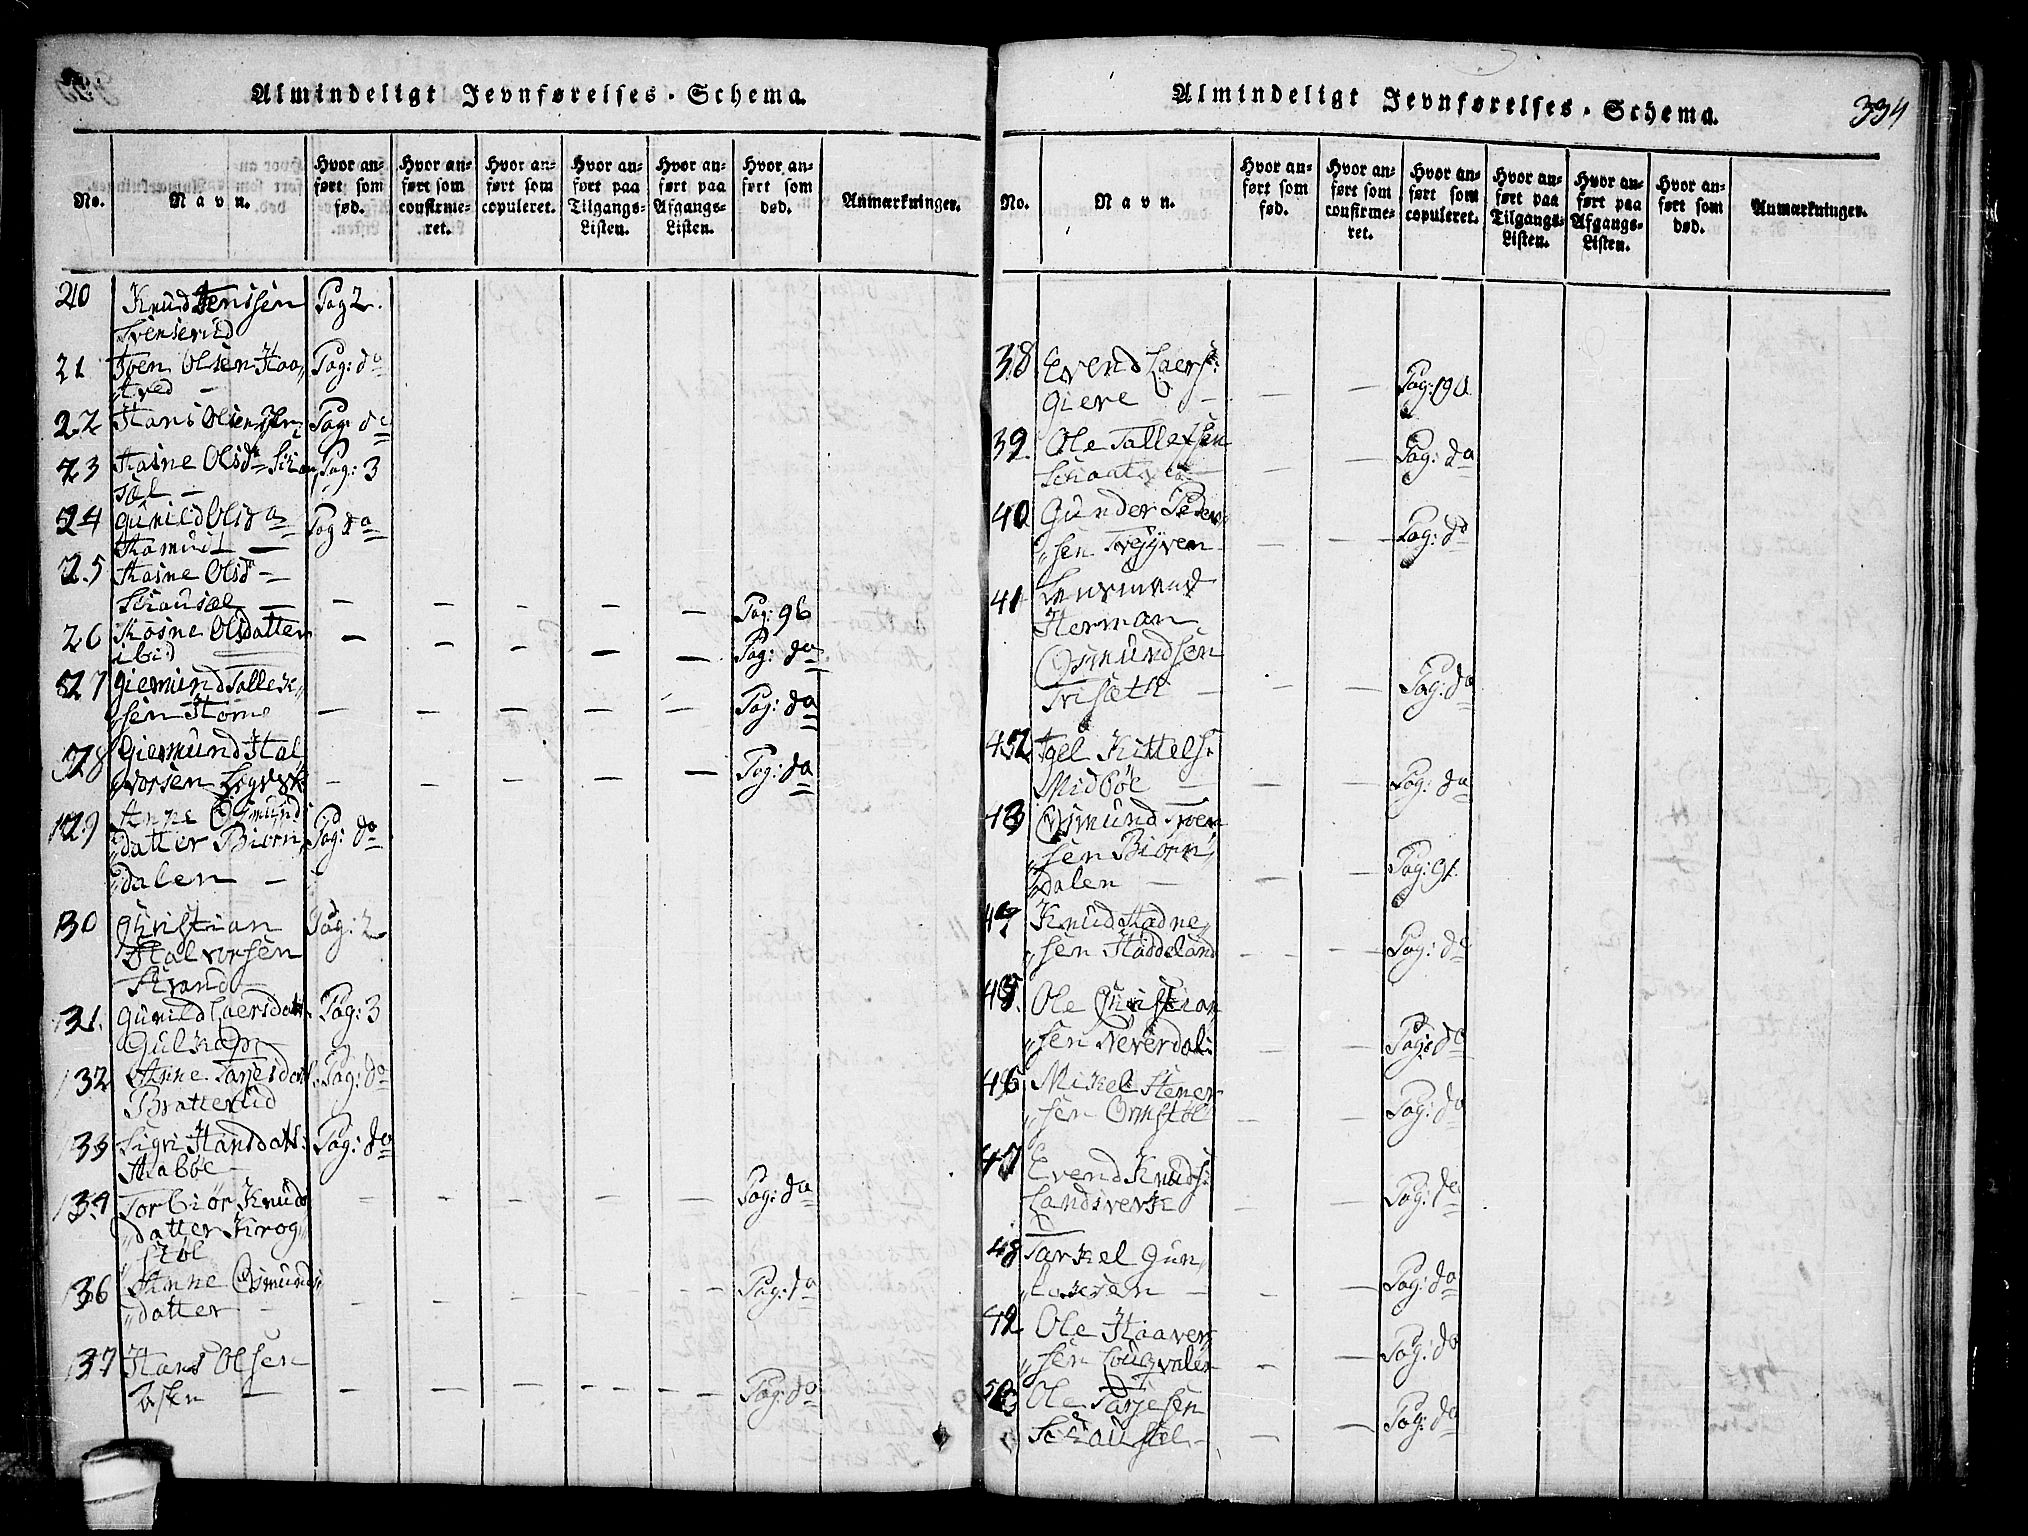 Almindeligt Jevnførelses-Schema.
No.
Navn.
Hvor an-
ført som
fød.
Hvor an-
ført som
confirme-
ret.
Hvor an-
ført som
copuleret.
Hvor an-
ført paa
Tilgangs-
Listen.
Hvor an-
ført paa
Afgangs-
Listen.
Hvor an-
ført som
død.
Anmærkninger.
20 Knud Jenssen Pag 2.
21 Sven Olsen Haa, Pag: do
tved
22 Hans Olsen Pag: do
23 Aasne Olsd Pag: 3
24 Gunild Olsda Pag do
25 Aasne Olsd
Schousæl Pag: 96
26 Aasne Olsdatter
ibid Pag: do
27 Giermund Tallek,
sen Pag: do
28 Giermund Hal
vorsen Pag: do
29 Anne Osmund
datter Biørn, Pag: do
dalen
30 Christian Pag: 2
Halvorsen
Strand
31. Gunild Laersdatt. Pag: 3
32 Anne Tarjesdatt. Pag: do
Bratterud
33 Sigri Hansdatt: Pag: do
34 Torbiør Knuds Pag: do
datter Krog,
36 Anne Osmunds
datter Pag: do
37 Hans Olsen
Pag: do
Almindeligt Jevnførelses-Schema.
334
No.
Navn.
Hvor an-
ført som
fød.
Hvor an-
ført som
confirme-
ret.
Hvor an-
ført som
copuleret.
Hvor an-
ført paa
Tilgangs-
Listen.
Hvor an-
ført paa
Afgangs-
Listen.
Hvor an-
ført som
død.
Anmærkninger.
38 Evend Laers:
Giere Pag: 90
39. Ole Tallefsen Pag: da
40 Gunder Peder,
sen Pag: do
41
Herman
Osmundsen
Trisæth Pag: da
42 Kittels:
Midbøe Pag: da
43 Osmund Sven
sen Biørn,
dalen Pag: 91.
44 Knud Aadne,
sen Haddeland Pag: do
45. Ole Christian,
sen Neverdal: Pag: do
46 Mikel Stener
sen Ormstøl Pag: do
47 Evend Knuds:
Landsverk Pag: do
48 Tarkel Gun,
Pag: da
49 Ole Haaver,
sen Pag: do
50 Ole Tarjesen
Schousæl Pag: do